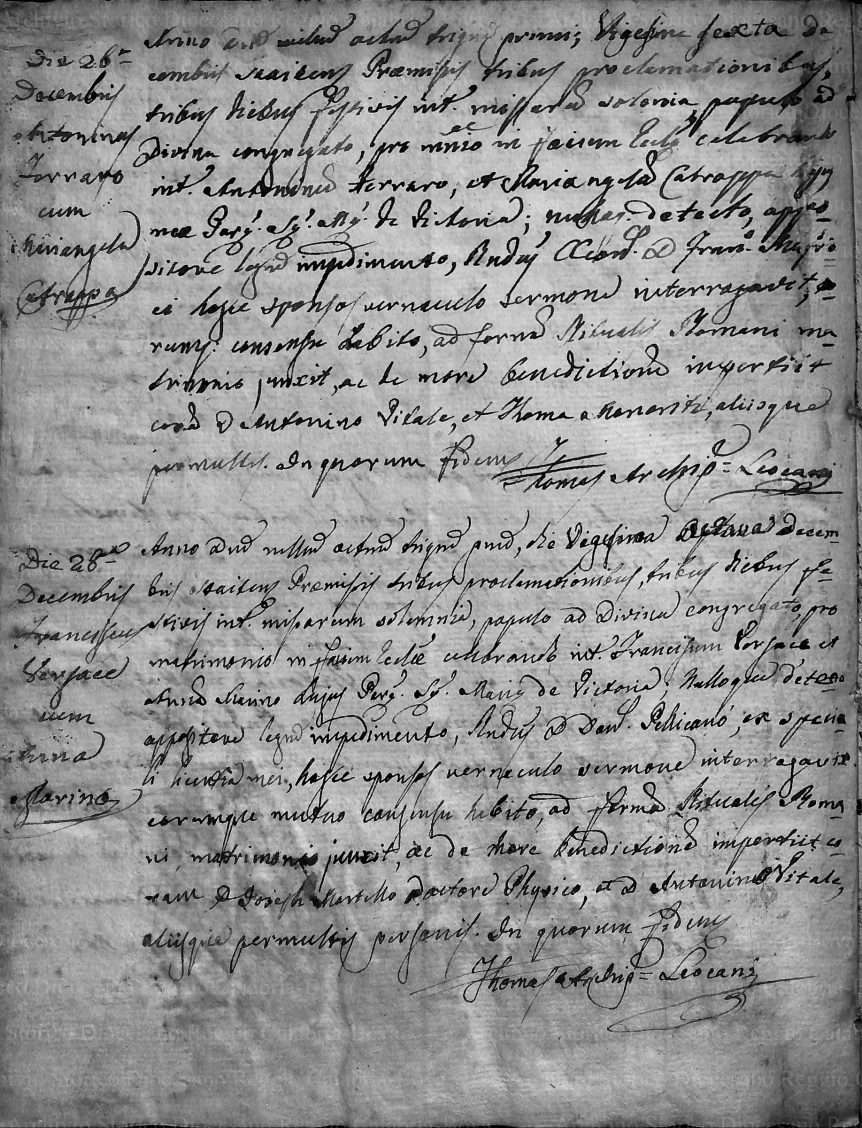 Die 26ª
Decembris
Antoninus
Ferraro
cum
Mariangela
Catroppa
Anno Dñi milmo octmo trigmo primi; Vigesima sexta De
cembris Praemissis tribus proclamationibus,
tribus diebus festivis intr. missarum solemnia populo ad
Divina congregato, pro mnio ac in faciem Eccle celebrando
intr. Antoninum Ferraro, et Mariangelam Catroppa
mea Par. S. M. de Victoria; detecto, appo-
sitove legmo impedimento, Rndus D.
hosce sponsos vernaculo sermone interrogavit, eo-
rumq. consensu habito, ad formam Ritualis Romani ma-
trimonio junxit, ac de more benedictionem impertiit
coram D Antonino Vitale, et Thoma a aliisque
permultis. In quorum fidem
Thomas Archip. = Leocani
Die 28ª
Decembris
Franciscus
Versace
cum
Anna
Marino
Anno Dñi millmo octmo trigmo pmo, die Vigesima Octava Decem
bris Praemissis tribus proclamationibus, tribus diebus fe-
stivis intr. missarum solemnia, populo ad Divina congregato, pro
matrimonio in faciem Eccle celebrando intr. Franciscum Versace et
Annam Marino hujus Par. S. Mariae de Victoria; Nulloque detecto
appositove legmo impedimento, Rndus D Dom. Pellicanò, ex specia
li licentia mei, hosce sponsos vernaculo sermone interrogavit
eorumque mutuo consensu habito, ad formam Ritualis Roma
ni, matrimonio junxit, ac de more benedictionem impertiit co-
ram D Joseph Martello Doctore Physico, et D Antonino Vitale,
aliisque permultis personis. In quorum fidem
Thomas Archip. = Leocani